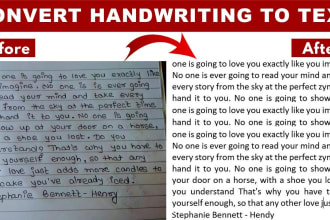 CONVERT HANDWRITING TO TE
fore
After
one is going to love you exactly like
imagine. No one is ever going
read your mind and take every
from the sky at the perfect time
hand it to you. No one is going
ow up at your door on a horse,
a shoe you lost. Do you
erstand? That's why you have to
yourself enough, so that any
love just adds more candles to
ake you've already iced.
ephanie Bennett - Henry
one is going to love you exactly like you im
No one is ever going to read your mind and
every story from the sky at the perfect zym
hand it to you. No one is going to show
one is going to love you exactly like you im
No one is ever going to read your mind and
every story from the sky at the perfect zym
hand it to you. No one is going to show
your door on a horse, with a shoe you lo
you understand That's why you have t
yourself enough, so that any other love ju
Stephanie Bennett - Hendy